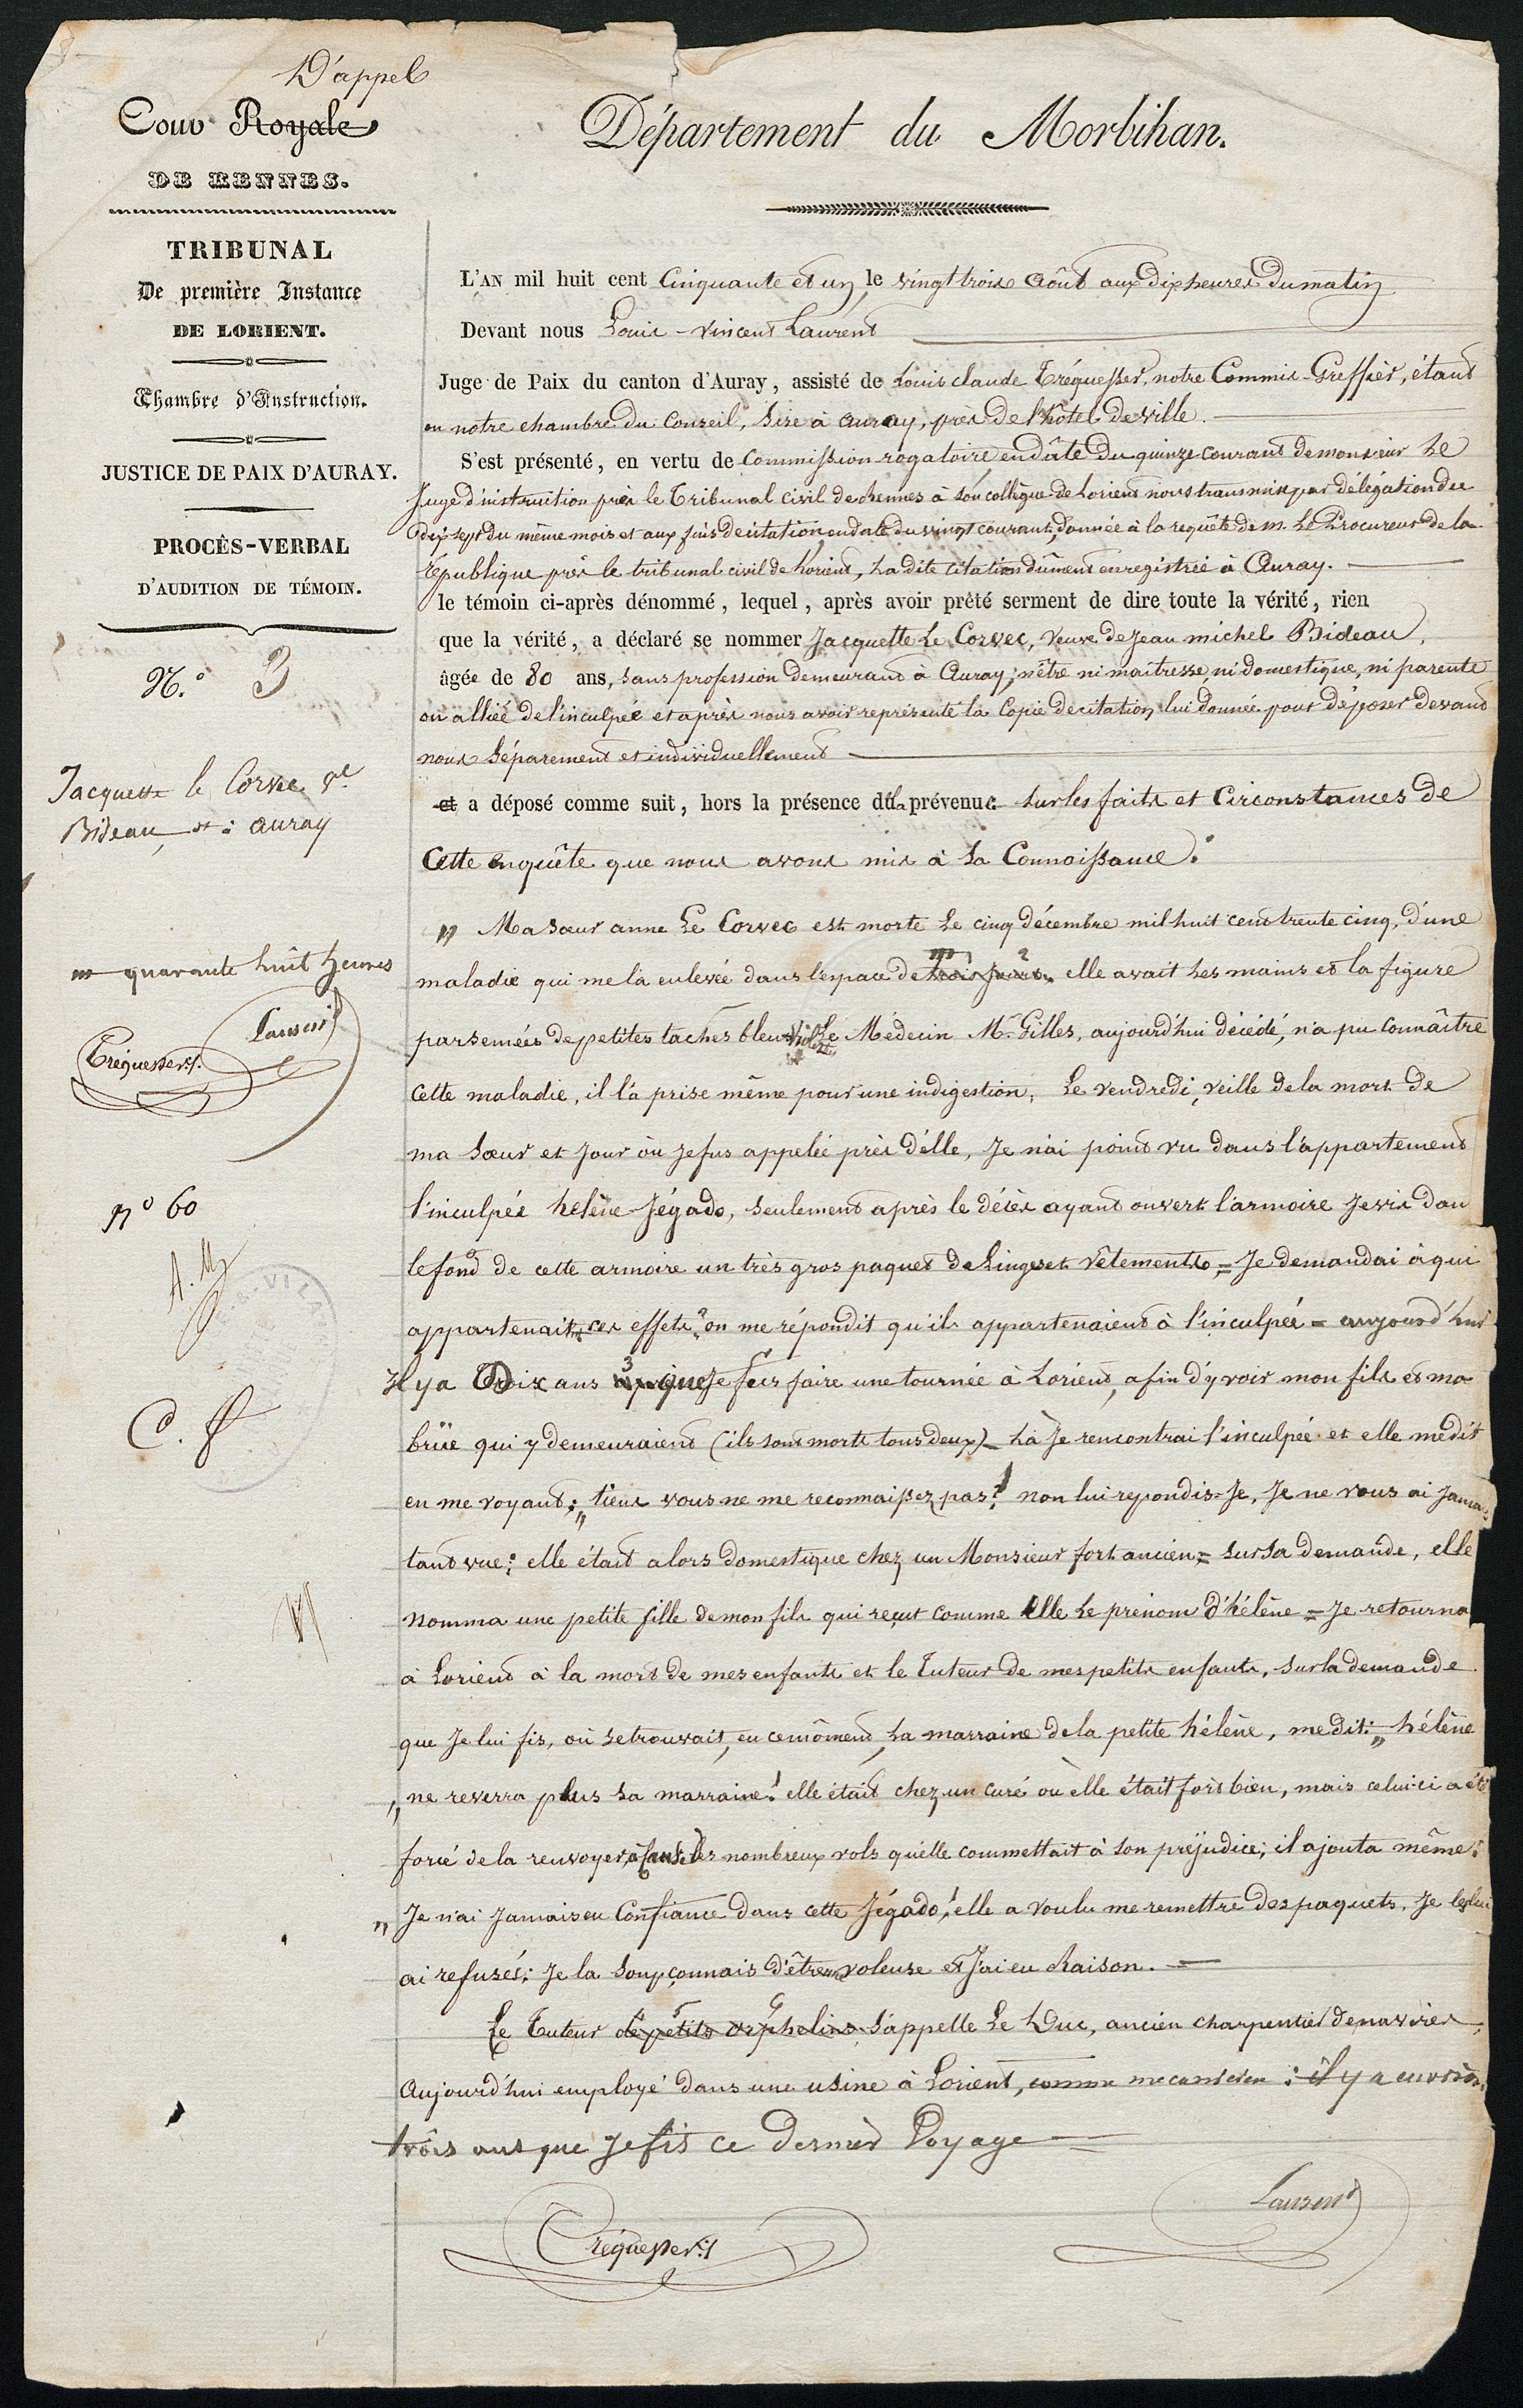 D'appel
Cour Royale
DE RENNES.
TRIBUNAL
De première Instance
DE LORIENT.
Chambre d'Instruction.
JUSTICE DE PAIX D'AURAY.
PROCÈS-VERBAL
D'AUDITION DE TÉMOIN.
N.° 3
Jacquette le Corvec Ve
Bideau, à auray
quarante huit heures
Laurent
Tréquesser
n° 60
C. f
VI
Département du Morbihan.
L'AN mil huit cent Cinquante et un, le vingt trois Août aux dix heures du matin
Devant nous Louis-Vincent Laurent
Juge de Paix du canton d'Auray, assisté de Louis claude Tréquesser, notre Commis-Greffier, étant
en notre chambre du Conseil, Sise à Auray, près de l'hôtel de ville.
S'est présenté, en vertu de Commission rogatoire en dâte du quinze courant de monsieur Le
Juge d'instruction près le Tribunal civil de Rennes à son collègue de Lorient nous transmise par délégation du
dix sept du même mois et aux fins de citation en date du vingt courant, donnée à la requête de m. Le Procureur de la
république près le tribunal civil de Lorient, La dite citation dûment enregistrée à Auray.
le témoin ci-après dénommé, lequel, après avoir prêté serment de dire toute la vérité, rien
que la vérité, a déclaré se nommer Jacquette Le Corvec, veuve de Jean michel Bideau,
âgée de 80 ans, sans profession demeurant à Auray, n'être ni maîtresse, ni domestique, ni parente
ou alliée de l'inculpée et après nous avoir représenté la Copie de citation lui donnée pour déposer devant
nous Séparement et individuellement
et a déposé comme suit, hors la présence de la prévenue Sur les faits et Circonstances de
Cette enquête que nous avons mis à Sa Connaissance:
„ Ma Sœur anne Le Corvec est morte Le cinq décembre mil huit cent trente cinq, d'une
maladie qui me l'a enlevée dans l'espace de trois jours. elle avait les mains et la figure
parsemées de petites taches bleu violette Le Médecin Mr. Gilles, aujourd'hui décédé, n'a pu Connaître
Cette maladie, il l'a prise même pour une indigestion, Le vendredi, veille de la mort de
ma Sœur et jour où je fus appelée près d'elle, Je n'ai point vu dans l'appartement
l'inculpée helène Jégado, seulement après le décès ayant ouvert l'armoire Je vis dan
le fond de cette armoire un très gros paquet de Linges et Vêtements = Je demandai à qui
appartenait ces effets? on me répondit qu'ils appartenaient à l'inculpée = aujourd'hui
Il y a Dix ans que je fus faire une tournée à Lorient, afin d'y voir mon fils et ma
brüe qui y demeuraient (ils sont morts tous deux) = Là Je rencontrai l'inculpée et elle me dit
en me voyant: „ tiens vous ne me reconnaissez pas! non lui repondis-Je, Je ne vous ai Jama
tant vue: elle était alors domestique chez un Monsieur fort ancien = Sur Sa demande, elle
nomma une petite fille de mon fils qui reçut comme Elle Le prénom d'hélène = Je retourna
à Lorient à la mort de mes enfants et le Tuteur de mes petits enfants, Sur la demande
que Je lui fis, où Se trouvait, en ce môment, La marraine de la petite hélène, me dit: „ hélène
„ ne reverra plus Sa marraine! elle était chez un curé où elle était fort bien, mais celui-ci a été
forcé de la renvoyer, à cause des nombreux vols qu'elle commettait à Son préjudice; il ajouta même:
„ Je n'ai Jamais eu Confiance dans cette Jégado! elle a voulu me remettre des paquets, Je les lui
ai refusés: Je la Soupçonnais d'être une voleuse et J'ai eu Raison. —
Le Tuteur de petits orphelins s'appelle Le Duc, ancien charpentier de navires,
Aujourd'hui employé dans une usine à Lorient, comme mecanicien: il y a environ
trois ans que Je fis ce dernier Voyage
Tréquesser
Laurent